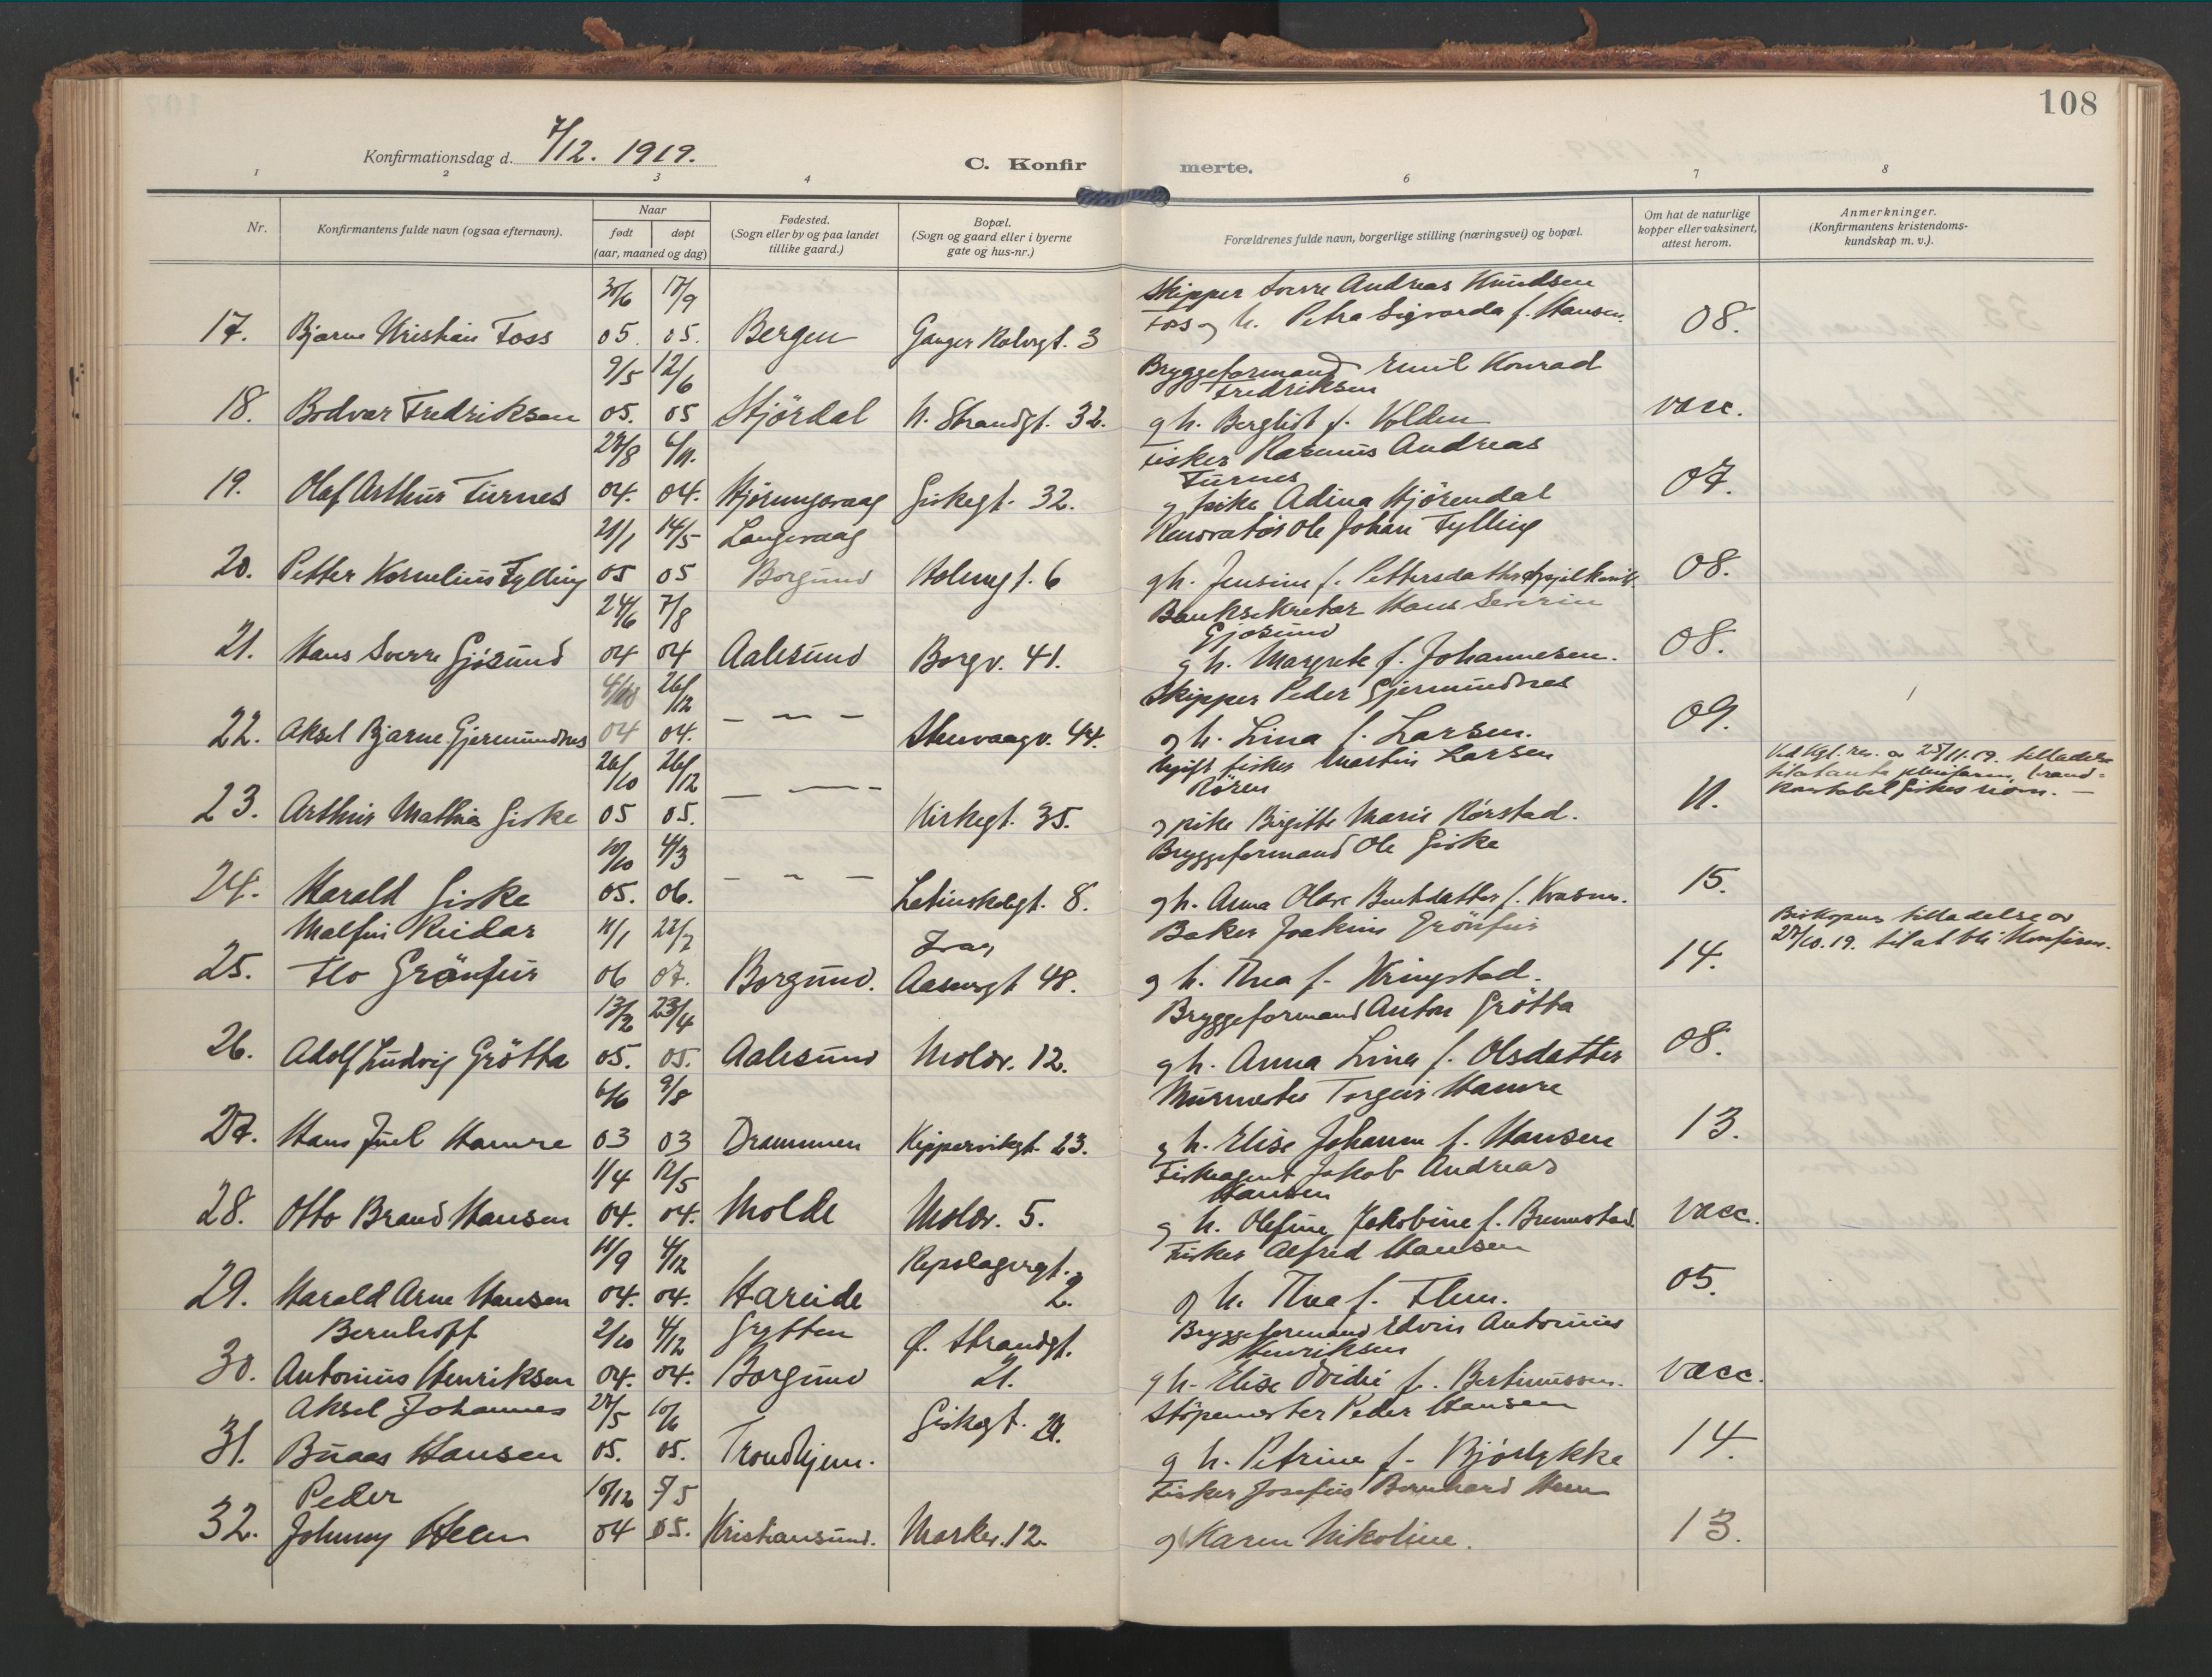 108
Konfirmationsdag d. 7/12. 1919.
C. Konfirmerte.
1 2 3 4 6 7 8
Nr.
Konfirmantens fulde navn (ogsaa efternavn).
Naar
født døpt
(aar, maaned og dag)
Fødested.
(Sogn eller by og paa landet
tillike gaard.)
Bopæl.
(Sogn og gaard eller i byerne
gate og hus-nr.)
Forældrenes fulde navn, borgerlige stilling (næringsvei) og bopæl.
Om hat de naturlige
kopper eller vaksinert,
attest herom.
Anmerkninger.
(Konfirmantens kristendoms-
kundskap m. v.).
30/6 17/9 Skipper Sverre Andreas Knudsen
17. Bjarne Kristian Foss 05. 05. Bergen Ganger Rolvsgt. 3 Foss og h. Petra Sigvarda f. Hansen. 08.
9/5 12/6 Bryggeformand Emil Konrad
Fredriksen
18. Bodvar Fredriksen 05. 05 Stjördal N. Strandgt. 32. g h. Bergliot f. Volden vacc.
28/8 6/11. Fisker Rasmus Andreas
Furnes
19. Olaf Arthur Furnes 04. 04. Hjörungavaag Giskegt. 32. g pike Adina Hjörendal 07.
21/1 14/5 Langevaag Ole Johan Fylling
20. Petter Kornelius Fylling 05 05 Borgund Holmgt. 6 g h. Jensine f. Pettersdatter 08.
24/6 7/8 Banksekretær Hans Severin
Gjøsund
21. Hans Sverre Gjösund 04 04 Aalesund Borgv. 41. g h. Margrete f. Johannesen. 08.
4/10 26/12 Skipper Peder Gjermundnes
22. Aksel Bjarne Gjermundnes 04 04. – – – Stervaagv. 44. g h. Lina f. Larsen. 09.
26/10 26/12 Ugift fisker Martin Larsen
Rören
23. Arthur Mathias Giske 05 05. – – – Kirkegt. 35. g pike Birgitte Marie Rørstad. 11.
Ved kgl. res. av 25/11.19. tilladelse
til at anta
Giskes navn. –
10/10 4/3 Bryggeformand Ole Giske
24. Harald Giske 05. 06. – – – Latinskolegt. 8. g h. Anna Olave f. 15.
Malfin Reidar 11/1 22/7 Baker Joakim Grönfur
25. Flo Grönfur 06 07. Borgund. 48. g h. Thea f. Kringstad. 14.
Biskopens tilladelse av
27/10.19. til at bli konfirm.
13/2 23/4 Bryggeformand Anton Grötta
26. Adolf Ludvig Grötta 05. 05. Aalesund Molov. 12. g h. Anna Lina f. Olsdatter 08.
6/6 9/8 Murmester Torgeir Hamre
27. Hans Juel Hamre 03 03 Drammen Kippervikgt. 23. g h. Elise Johanne f. Hansen 13.
1/4 12/5 Fiskeagent Jakob Andreas
Hansen
28. Otto Brand Hansen 04. 04. Molde Molov. 5. g h. Olefine Jakobine f. Brunstad. vacc.
11/9 4/12 Repslagergt. Fisker Alfred Hansen
29. Harald Arne Hansen 04. 04. Hareide 2. g h. Thea f. Flem. 05.
Bernhoff 2/10 4/12 Grytten Ø. Strandgt. Bryggeformand Edvin Antonius
Henriksen
30. Antonius Henriksen 04. 04. Borgund 21. g h. Elise Ovidie f. Bertinussen. vacc.
Aksel Johannes 27/5 10/6 Giskegt. 21. Stöpemester Peder Hansen
31. Buaas Hansen 05. 05. Trondhjem. g h. Petrine f. Bjørlykke 14.
Peder 10/12 7/5 Fisker Josefus Bernhard Heen
32. Johnny Heen 04 05. Kristiansund. Markev. 12. g Karen Nikoline. 13.